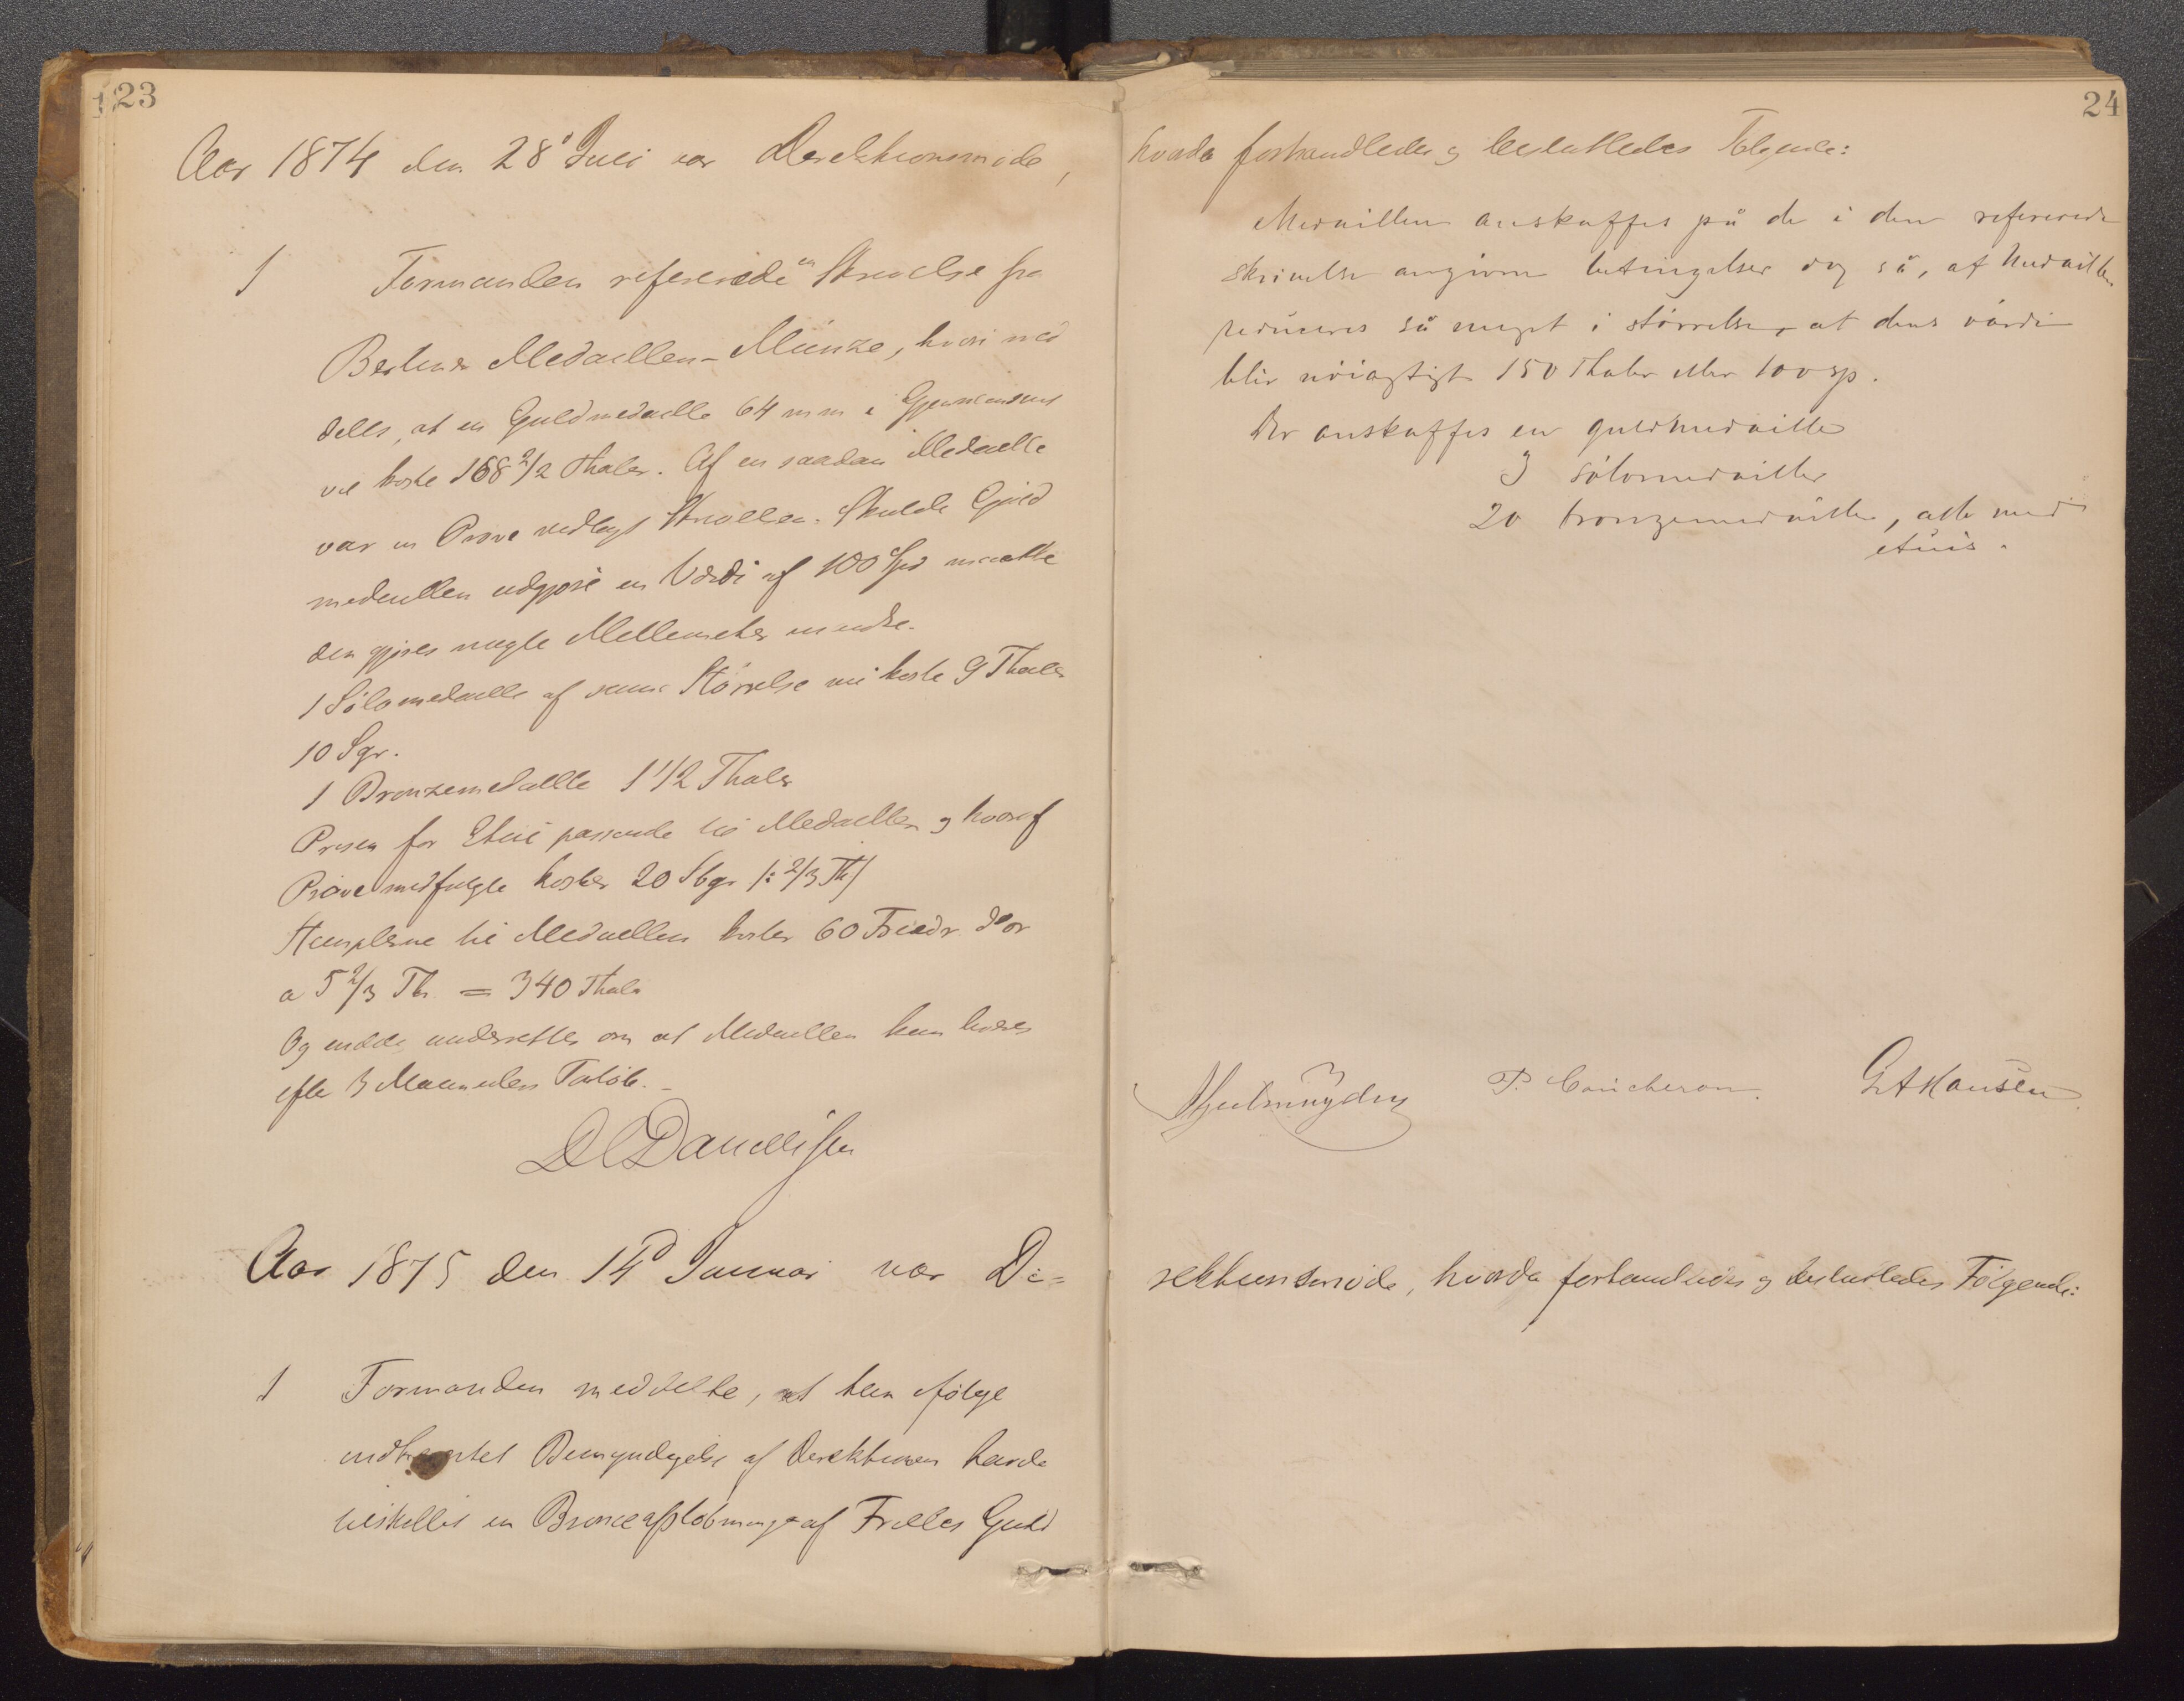 23
Aar 1874 den 28d Juli var Direktionsmøde,
1 Formanden refererede en Skrivelse fra
Berliner Medaillen-Münze, hvori med
deles, at en Guldmedaille 64 mm i Gjennemsnit
vil koste 168 2/2 Thaler. Af en saadan Medaille
var en Prøve vedlagt Skrivelsen. Skulde Guld
medaillen udgjøre en Værdi af 100 Spd maatte
den gjøres nogle Millemeter mindre.
1 Sølvmedaille af samme Størrelse vil koste 9 Thaler
10 Sgr.
1 Bronzemedaille 1 1/2 Thaler
Prisen for Etui passende til Medaillen og hvoraf
Prøve medfulgte koster 20 Sbgr /: 2/3 Th/
Stemplerne til Medaillen koster 60 Friedr d'or
a 5 2/3 Th. = 340 Thaler
Og endelig underrettes om at Medaillen kan leveres
efter 3 Maaneders Forløb.
DCDanielssen
Aar 1875 den 14d Januar var Di=
1 Formanden meddelte, at han ifølge
indhentet Bemyndigelse af Direktionen havde
bestillet en Bronceafstøbning af Frelles Guld
24
hvorda forhandledes og besluttedes Følgende:
Medaillen anskaffes på de i den refererede
skrivelse angivne betingelser dog så, at Medaillen
reduceres så meget i størrelse, at dens værdi
blir nöiagtigt 150 Thaler eller 100 sp.
Der anskaffes en guldmedaille
3 sølvmedailler
20 bronzemedailler, alle med
etuis.
P. Coucheron. GAHansen.
rektionsmøde, hvorda forhandledes og besluttedes Følgende: